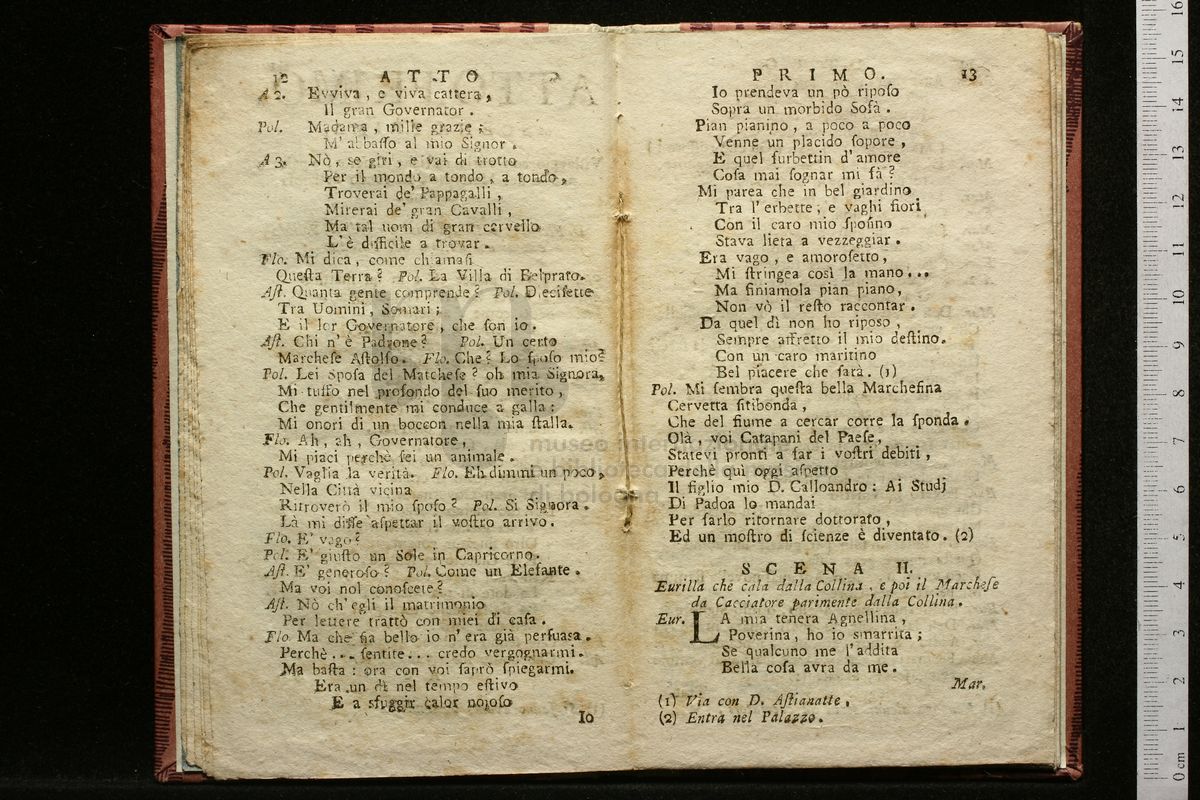 12 ATTO
A 2. Evviva, e viva cattera,
Il gran Governator.
Pol. Madama, mille grazie;
M' abbaſſo al mio Signor.
A 3. Nò, ſe giri, e vai di trotto
Per il mondo a tondo, a tondo,
Troverai de' Pappagalli,
Mirerai de' gran Cavalli,
Ma tal uom di gran cervello
L'è difficile a trovar.
Flo. Mi dica, come chiamaſi
Queſta Terra? Pol. La Villa di Belprato.
Aſt. Quanta gente comprende? Pol. Dieciſette
Tra Uomini, Somari;
E il lor Governatore, che ſon io.
Aſt. Chi n'è Padrone? Pol. Un certo
Marcheſe Aſtolfo. Flo. Che? Lo ſpoſo mio?
Pol. Lei Spoſa del Marcheſe? oh mia Signora,
Mi tuffo nel profondo del ſuo merito,
Che gentilmente mi conduce a galla:
Mi onori di un boccon nella mia ſtalla.
Flo. Ah, ah, Governatore,
Mi piaci perchè ſei un animale.
Pol. Vaglia la verità. Flo. Eh dimmi un poco,
Nella Città vicina
Ritroverò il mio ſpoſo? Pol. Sì Signora.
Là mi diſſe aſpettar il voſtro arrivo.
Flo. E' vago?
Pol. E' giuſto un Sole in Capricorno.
Aſt. E' generoſo? Pol. Come un Elefante.
Ma voi nol conoſcete?
Aſt. Nò ch'egli il matrimonio
Per lettere trattò con miei di caſa.
Flo. Ma che ſia bello io n'era già perſuasa.
Perchè... ſentite... credo vergognarmi.
Ma baſta: ora con voi ſaprò ſpiegarmi.
Era un dì nel tempo eſtivo
E a sfuggir calor nojoſo
Io
PRIMO. 13
Io prendeva un pò ripoſo
Sopra un morbido Sofà.
Pian pianino, a poco a poco
Venne un placido ſopore,
E quel furbettin d'amore
Coſa mai ſognar mi fà?
Mi parea che in bel giardino
Tra l'erbette, e vaghi fiori
Con il caro mio ſpoſino
Stava lieta a vezzeggiar.
Era vago, e amoroſetto,
Mi ſtringea così la mano...
Ma finiamola pian piano,
Non vò il reſto raccontar.
Da quel dì non ho ripoſo,
Sempre affretto il mio deſtino.
Con un caro maritino
Bel piacere che ſarà. (1)
Pol. Mi ſembra queſta bella Marcheſina
Cervetta ſitibonda,
Che del fiume a cercar corre la ſponda.
Olà, voi Catapani del Paeſe,
Statevi pronti a far i voſtri debiti,
Perchè quì oggi aſpetto
Il figlio mio D. Calloandro: Ai Studj
Di Padoa lo mandai
Per farlo ritornare dottorato,
Ed un moſtro di ſcienze è diventato. (2)
SCENA II.
Eurilla che cala dalla Collina, e poi il Marcheſe
da Cacciatore parimente dalla Collina.
Eur. LA mia tenera Agnellina,
Poverina, ho io smarrita;
Se qualcuno me l'addita
Bella coſa avra da me.
Mar.
(1) Via con D. Aſtianatte.
(2) Entra nel Palazzo.